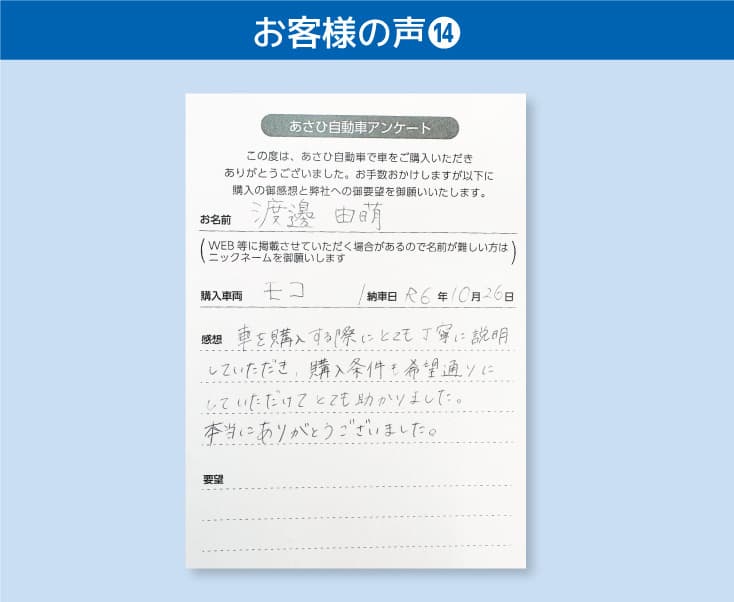 お客様の声⓮
あさひ自動車アンケート
この度は、あさひ自動車で車をご購入いただき
ありがとうございました。お手数おかけしますが以下に
購入の御感想と弊社への御要望を御願いいたします。
お名前 渡邉 由萌
(WEB等に掲載させていただく場合があるので名前が難しい方は
ニックネームを御願いします)
購入車両 モコ / 納車日 R6年10月26日
感想 車を購入する際にとても丁寧に説明
していただき、購入条件も希望通りに
していただけてとても助かりました。
本当にありがとうございました。
要望